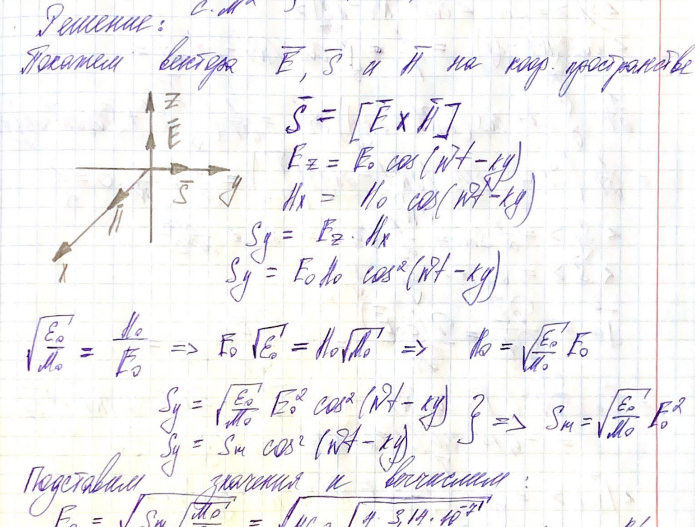 с. м²
Решение:
Покажем вектора E̅, S̅ и H̅ на коор. пространстве
z
E̅
S̅ y
H̅
x
S̅ = [E̅ x H̅]
Ez = E₀ cos(wt-ky)
Hx = H₀ cos(wt-ky)
Sy = Ez · Hx
Sy = E₀H₀ cos²(wt-ky)
√(ε₀/μ₀) = H₀/E₀ => E₀ √ε₀ = H₀√μ₀ => H₀ = √(ε₀/μ₀) E₀
Sy = √(ε₀/μ₀) E₀² cos²(wt-ky)
Sy = Sm cos²(wt-ky) } => Sm = √(ε₀/μ₀) E₀²
Подставим значения и вычислим:
E₀ = √(Sm √(μ₀ = √ √(4·3,14·10⁻⁷